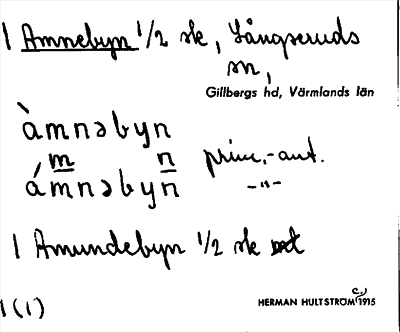 1 Amnebyn 1/2 sk, Långseruds
sn,
Gillbergs hd, Värmlands län
àmnəbyn
m n princ.-aut.
ámnəbyn -"-
1 Amundebyn 1/2 sk
1(1)
HERMAN HULTSTRÖM c.) 1915